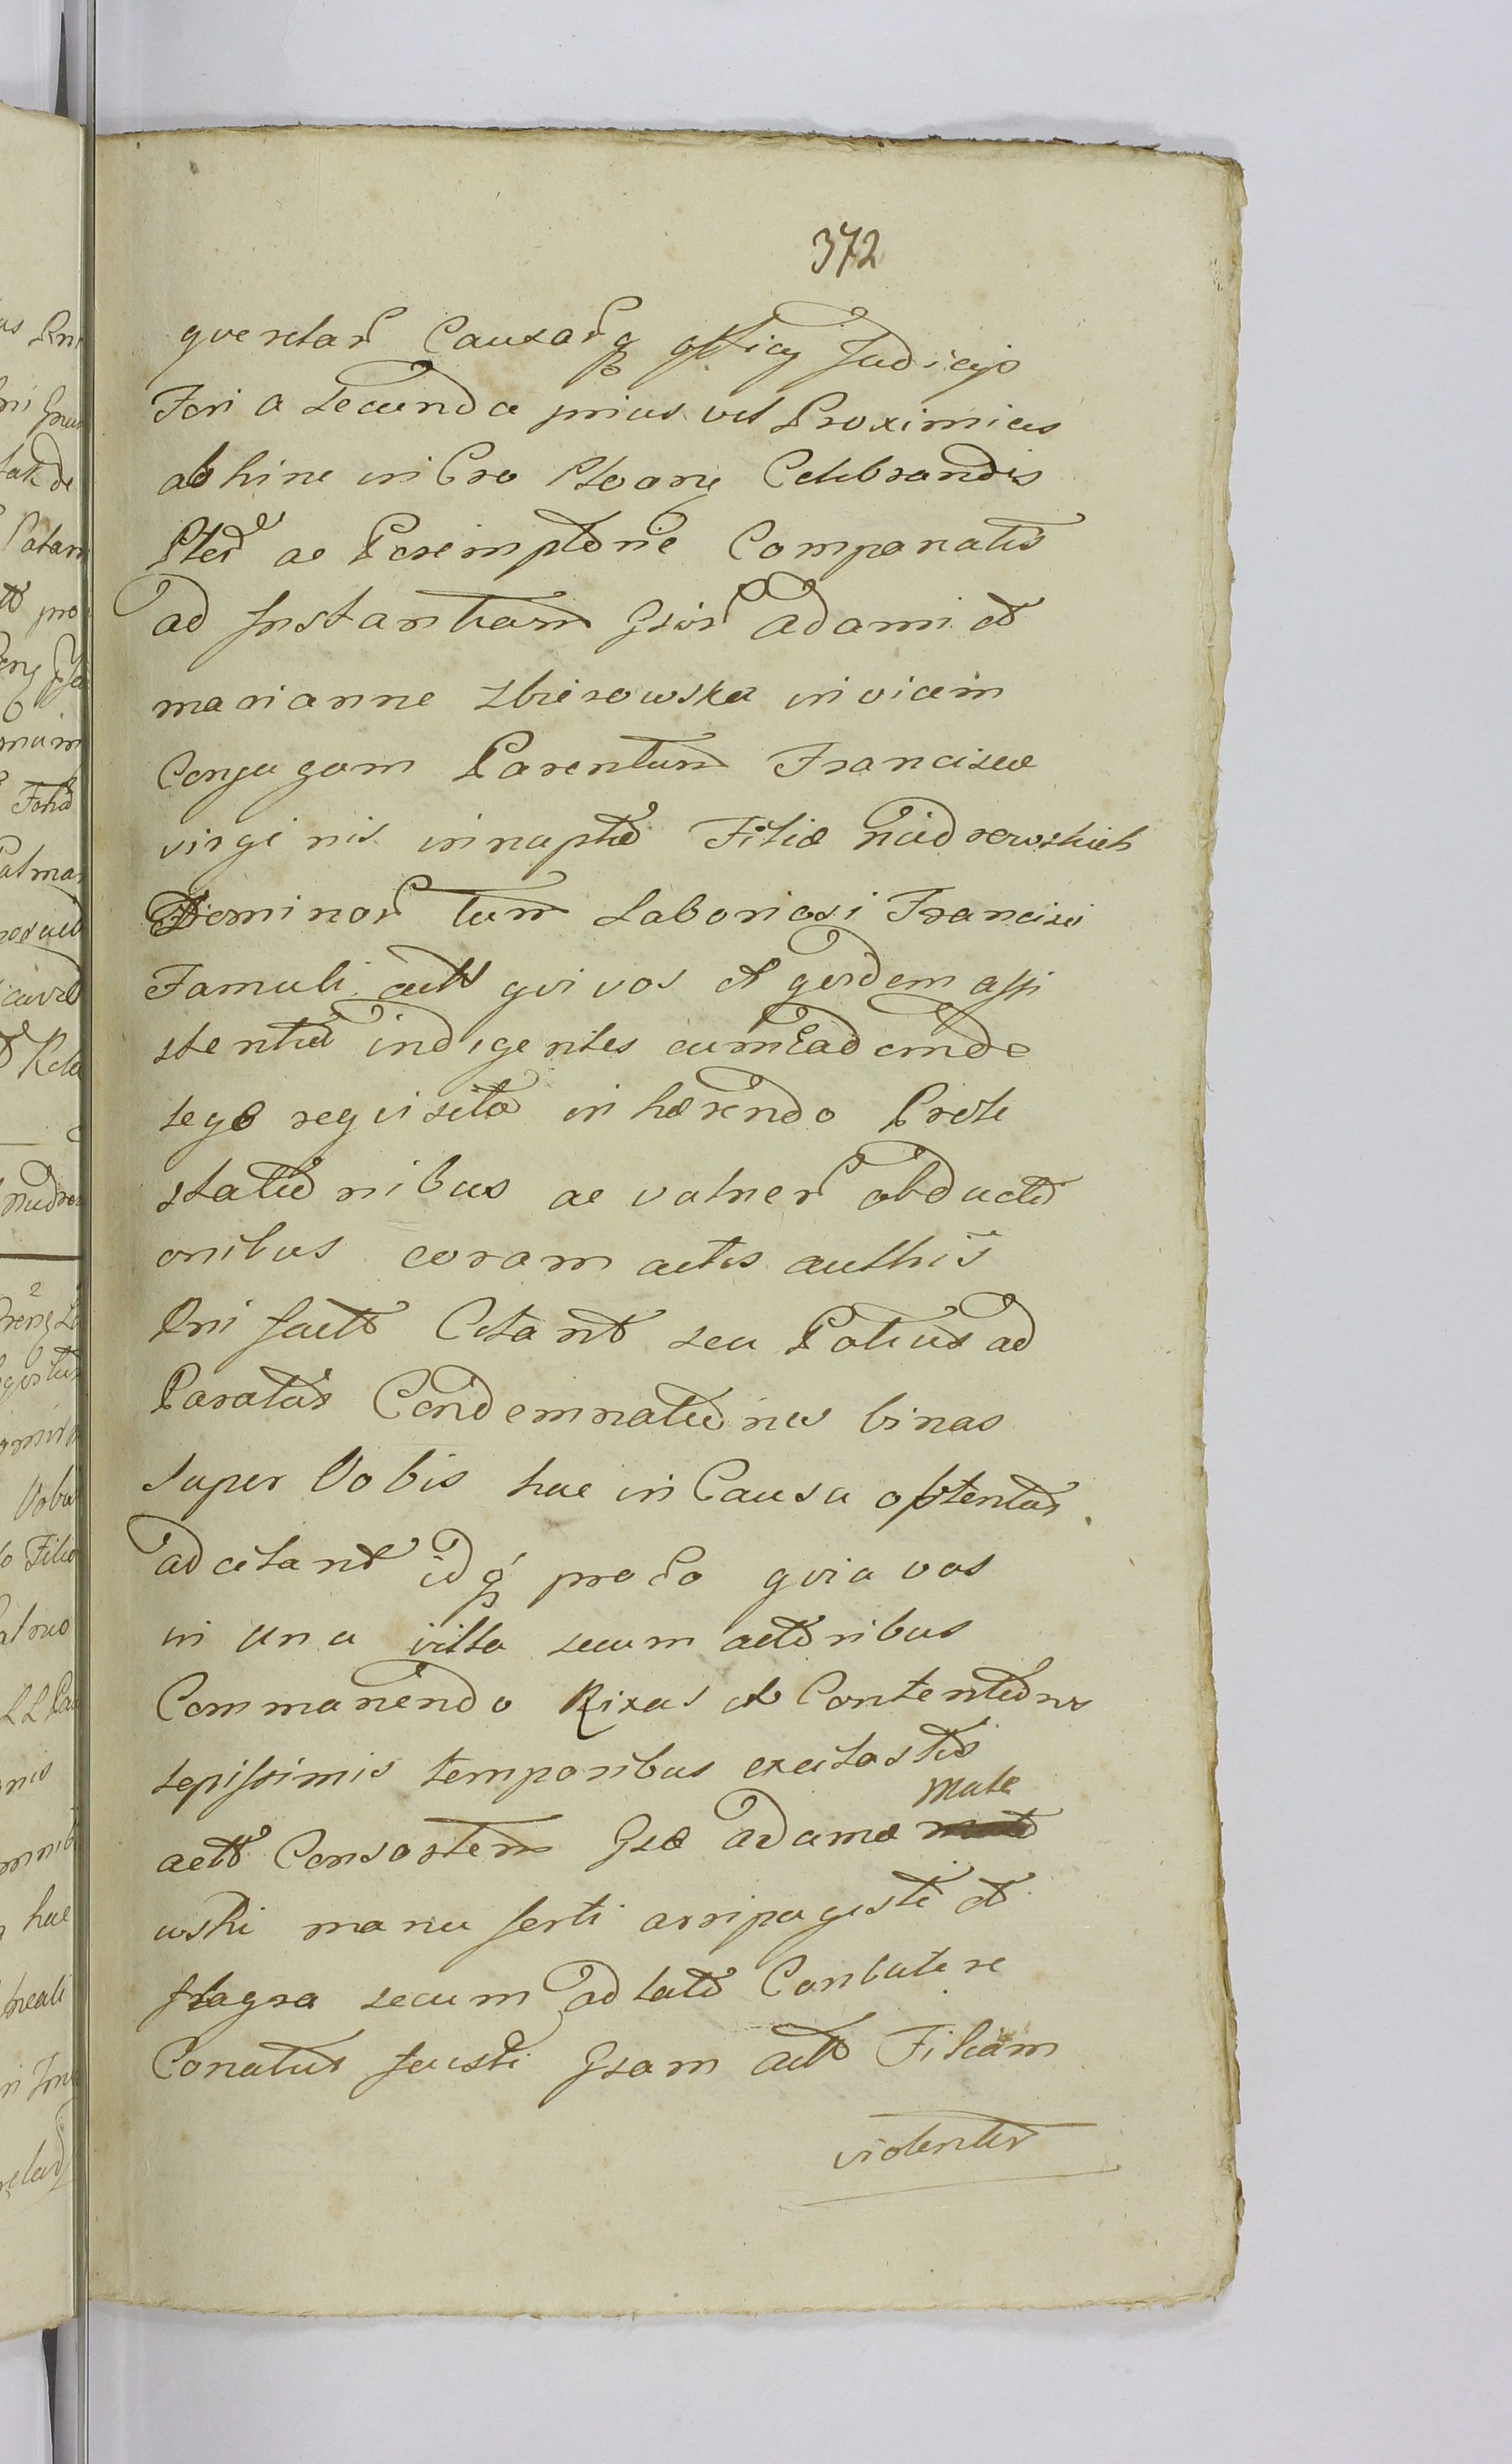 372
querelar Causarq officij Judicijs
Feria Secunda prius vel Proximius
abhinc in Cro Cttoany Celebrandis
Pter ac Peremptorie Compareatis
ad Instantiam Gsor Adami et
marianne Zbierowska invicem
Conjugam Parentum Francisce
virginis innupte Filiæ
Dominor tum Laboriosi Francisci
Famuli actt qvi vos et qvidem assi
stentia indigentes cum Eademde
lege reqvisita inhærendo Prote
stationibus ac vulner obducti
onibus coram actis authis
Pni factt Citant seu Potius ad
Paratas Condemnationes binas
super Vobis hac in Causa obtentas
adcitant idq pro eo qvia vos
in una villa secum actoribus
Commanendo Rixas et Contentiones
sepissimis temporibus excitastis
actt Consortem Gsæ Adamæ Mute
wski manu forti arripuisti et
flagra secum adlato Conbutere
Conatus fuisti Gsam actt Filiam
violenter